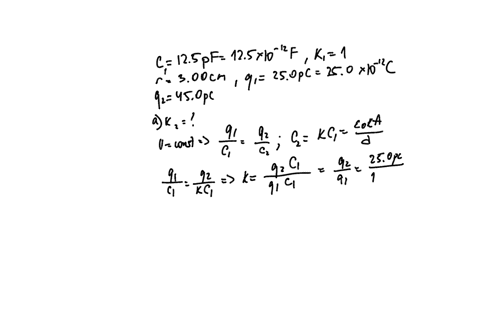 C₁ = 12.5 pF = 12.5 × 10⁻¹² F , K₁ = 1
r = 3.00 cm , q₁ = 25.0 pC = 25.0 × 10⁻¹² C
q₂ = 45.0 pC
a) K₂ = ?
U = const => q₁/C₁ = q₂/C₂ ; C₂ = KC₁ = ε₀εA/d
q₁/C₁ = q₂/KC₁ => K = q₂C₁/q₁C₁ = q₂/q₁ = 25.0 pC/1